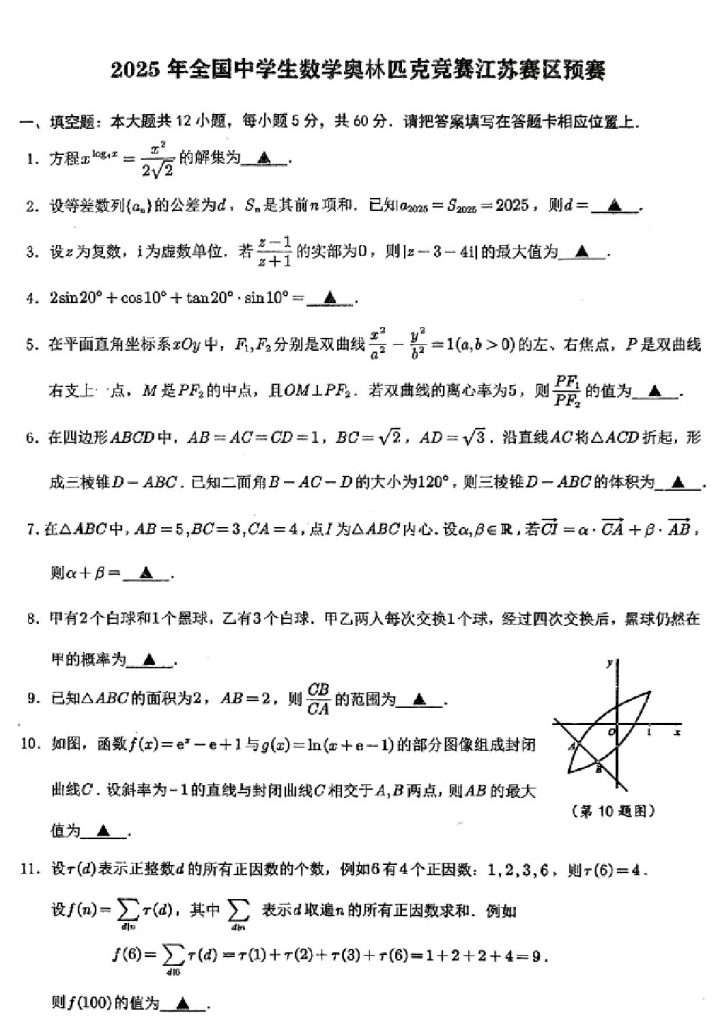 2025 年全国中学生数学奥林匹克竞赛江苏赛区预赛
一、填空题：本大题共 12 小题，每小题 5 分，共 60 分．请把答案填写在答题卡相应位置上．
1．方程 x^{log₄x} = x²/(2√2) 的解集为 ▲ ．
2．设等差数列{aₙ}的公差为d，Sₙ是其前n项和．已知a₂₀₂₅ = S₂₀₂₅ = 2025，则d = ▲ ．
3．设z为复数，i为虚数单位．若 (z−1)/(z+1) 的实部为0，则|z − 3 − 4i|的最大值为 ▲ ．
4．2sin20° + cos10° + tan20° · sin10° = ▲ ．
5．在平面直角坐标系xOy中，F₁,F₂分别是双曲线 x²/a² − y²/b² = 1(a,b > 0)的左、右焦点，P是双曲线
右支上一点，M是PF₂的中点，且OM⊥PF₂．若双曲线的离心率为5，则 PF₁/PF₂ 的值为 ▲ ．
6．在四边形ABCD中，AB = AC = CD = 1，BC = √2，AD = √3．沿直线AC将△ACD折起，形
成三棱锥D − ABC．已知二面角B − AC − D的大小为120°，则三棱锥D − ABC的体积为 ▲ ．
7．在△ABC中，AB = 5,BC = 3,CA = 4，点I为△ABC内心．设α,β∈ℝ，若 \overrightarrow{CI} = α · \overrightarrow{CA} + β · \overrightarrow{AB}，
则α + β = ▲ ．
8．甲有2个白球和1个黑球，乙有3个白球．甲乙两人每次交换1个球，经过四次交换后，黑球仍然在
甲的概率为 ▲ ．
9．已知△ABC的面积为2，AB = 2，则 CB/CA 的范围为 ▲ ．
10．如图，函数f(x) = eˣ − e + 1与g(x) = ln(x + e − 1)的部分图像组成封闭
曲线C．设斜率为−1的直线与封闭曲线C相交于A,B两点，则AB的最大
值为 ▲ ．
y
O
1
x
A
B
（第 10 题图）
11．设τ(d)表示正整数d的所有正因数的个数，例如6有4个正因数：1,2,3,6，则τ(6) = 4．
设f(n) = ∑_{d|n} τ(d)，其中 ∑_{d|n} 表示d取遍n的所有正因数求和．例如
f(6) = ∑_{d|6} τ(d) = τ(1) + τ(2) + τ(3) + τ(6) = 1 + 2 + 2 + 4 = 9．
则f(100)的值为 ▲ ．